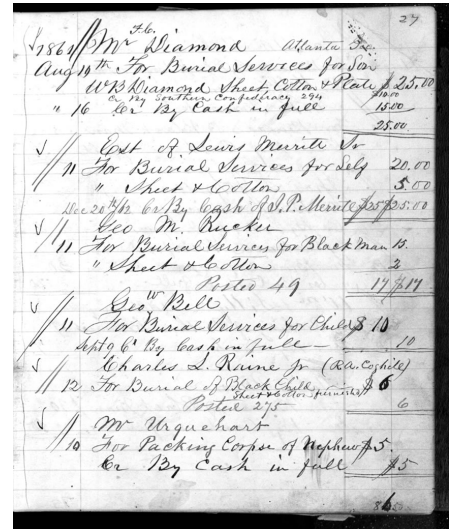 27
1861 Mr F.C. Diamond Atlanta
Aug 14th For Burial Services for Son
W B Diamond Sheet, Cotton & Plate $25.00
Cr By Southern Confederacy 294 $10.00
" 16 Cr By Cash in full 15.00
25.00
Est of Lewis Merritt Sr
11 For Burial Services for Self 20.00
" Sheet & Cotton 5.00
Dec 20th/62 Cr By Cash of J. P. Merritt $25 $25.00
Geo M. Rucker
11 For Burial Services for Black Man 15.
" Sheet & Cotton 2
Posted 49 17 $17
Geo W Bell
11 For Burial Services for Child $10
Sept 9 Cr By Cash in full — 10
Charles L. Raine Jr (R.A. Coghill)
12 For Burial of Black Child — $6
Sheet & Cotton furnished
Posted 275 6
Mr Urquehart
10 For Packing Corpse of Nephew $5.
Cr By Cash in full $5